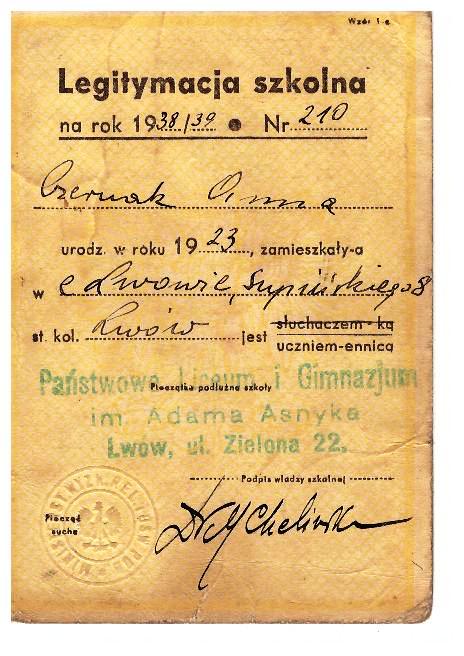 Wzór 1-a
Legitymacja szkolna
na rok 1938/39 • Nr 210
Czermak Anna
urodz. w roku 1923, zamieszkały-a
w Lwowie, Supińskiego 8
st. kol. Lwów jest słuchaczem-ką
uczniem-ennicą
Państwowe Liceum i Gimnazjum
Pieczątka podłużna szkoły
im. Adama Asnyka
Lwów, ul. Zielona 22.
Podpis władzy szkolnej
Pieczęć
sucha